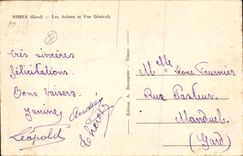 NIMES (Gard) — Les Arènes et Vue Générale
très sincères
félicitations.
Bons baisers.
Janine
André
Léopold
Melle
Fournier
Rue Pasteur
Manduel.
(Gard)